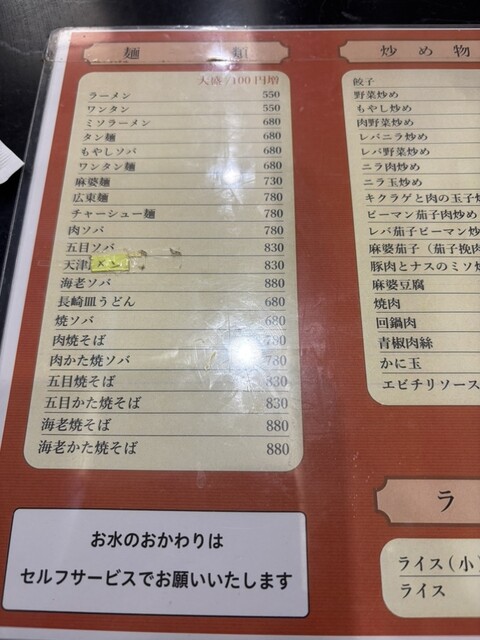 麺 類
大盛/100円増
ラーメン 550
ワンタン 550
ミソラーメン 680
タン麺 680
もやしソバ 680
ワンタン麺 680
麻婆麺 730
広東麺 780
チャーシュー麺 780
肉ソバ 780
五目ソバ 830
天津 830
海老ソバ 880
長崎皿うどん 680
焼ソバ 680
肉焼そば 780
肉かた焼ソバ 780
五目焼そば 830
五目かた焼そば 830
海老焼そば 880
海老かた焼そば 880
お水のおかわりは
セルフサービスでお願いいたします
炒め物
餃子
野菜炒め
もやし炒め
肉野菜炒め
レバニラ炒め
レバ野菜炒め
ニラ肉炒め
ニラ玉炒め
キクラゲと肉の玉子
ピーマン茄子肉炒め
レバ茄子ピーマン炒
麻婆茄子（茄子挽肉
豚肉とナスのミソ
麻婆豆腐
焼肉
回鍋肉
青椒肉絲
かに玉
エビチリソース
ラ
ライス(小)
ライス